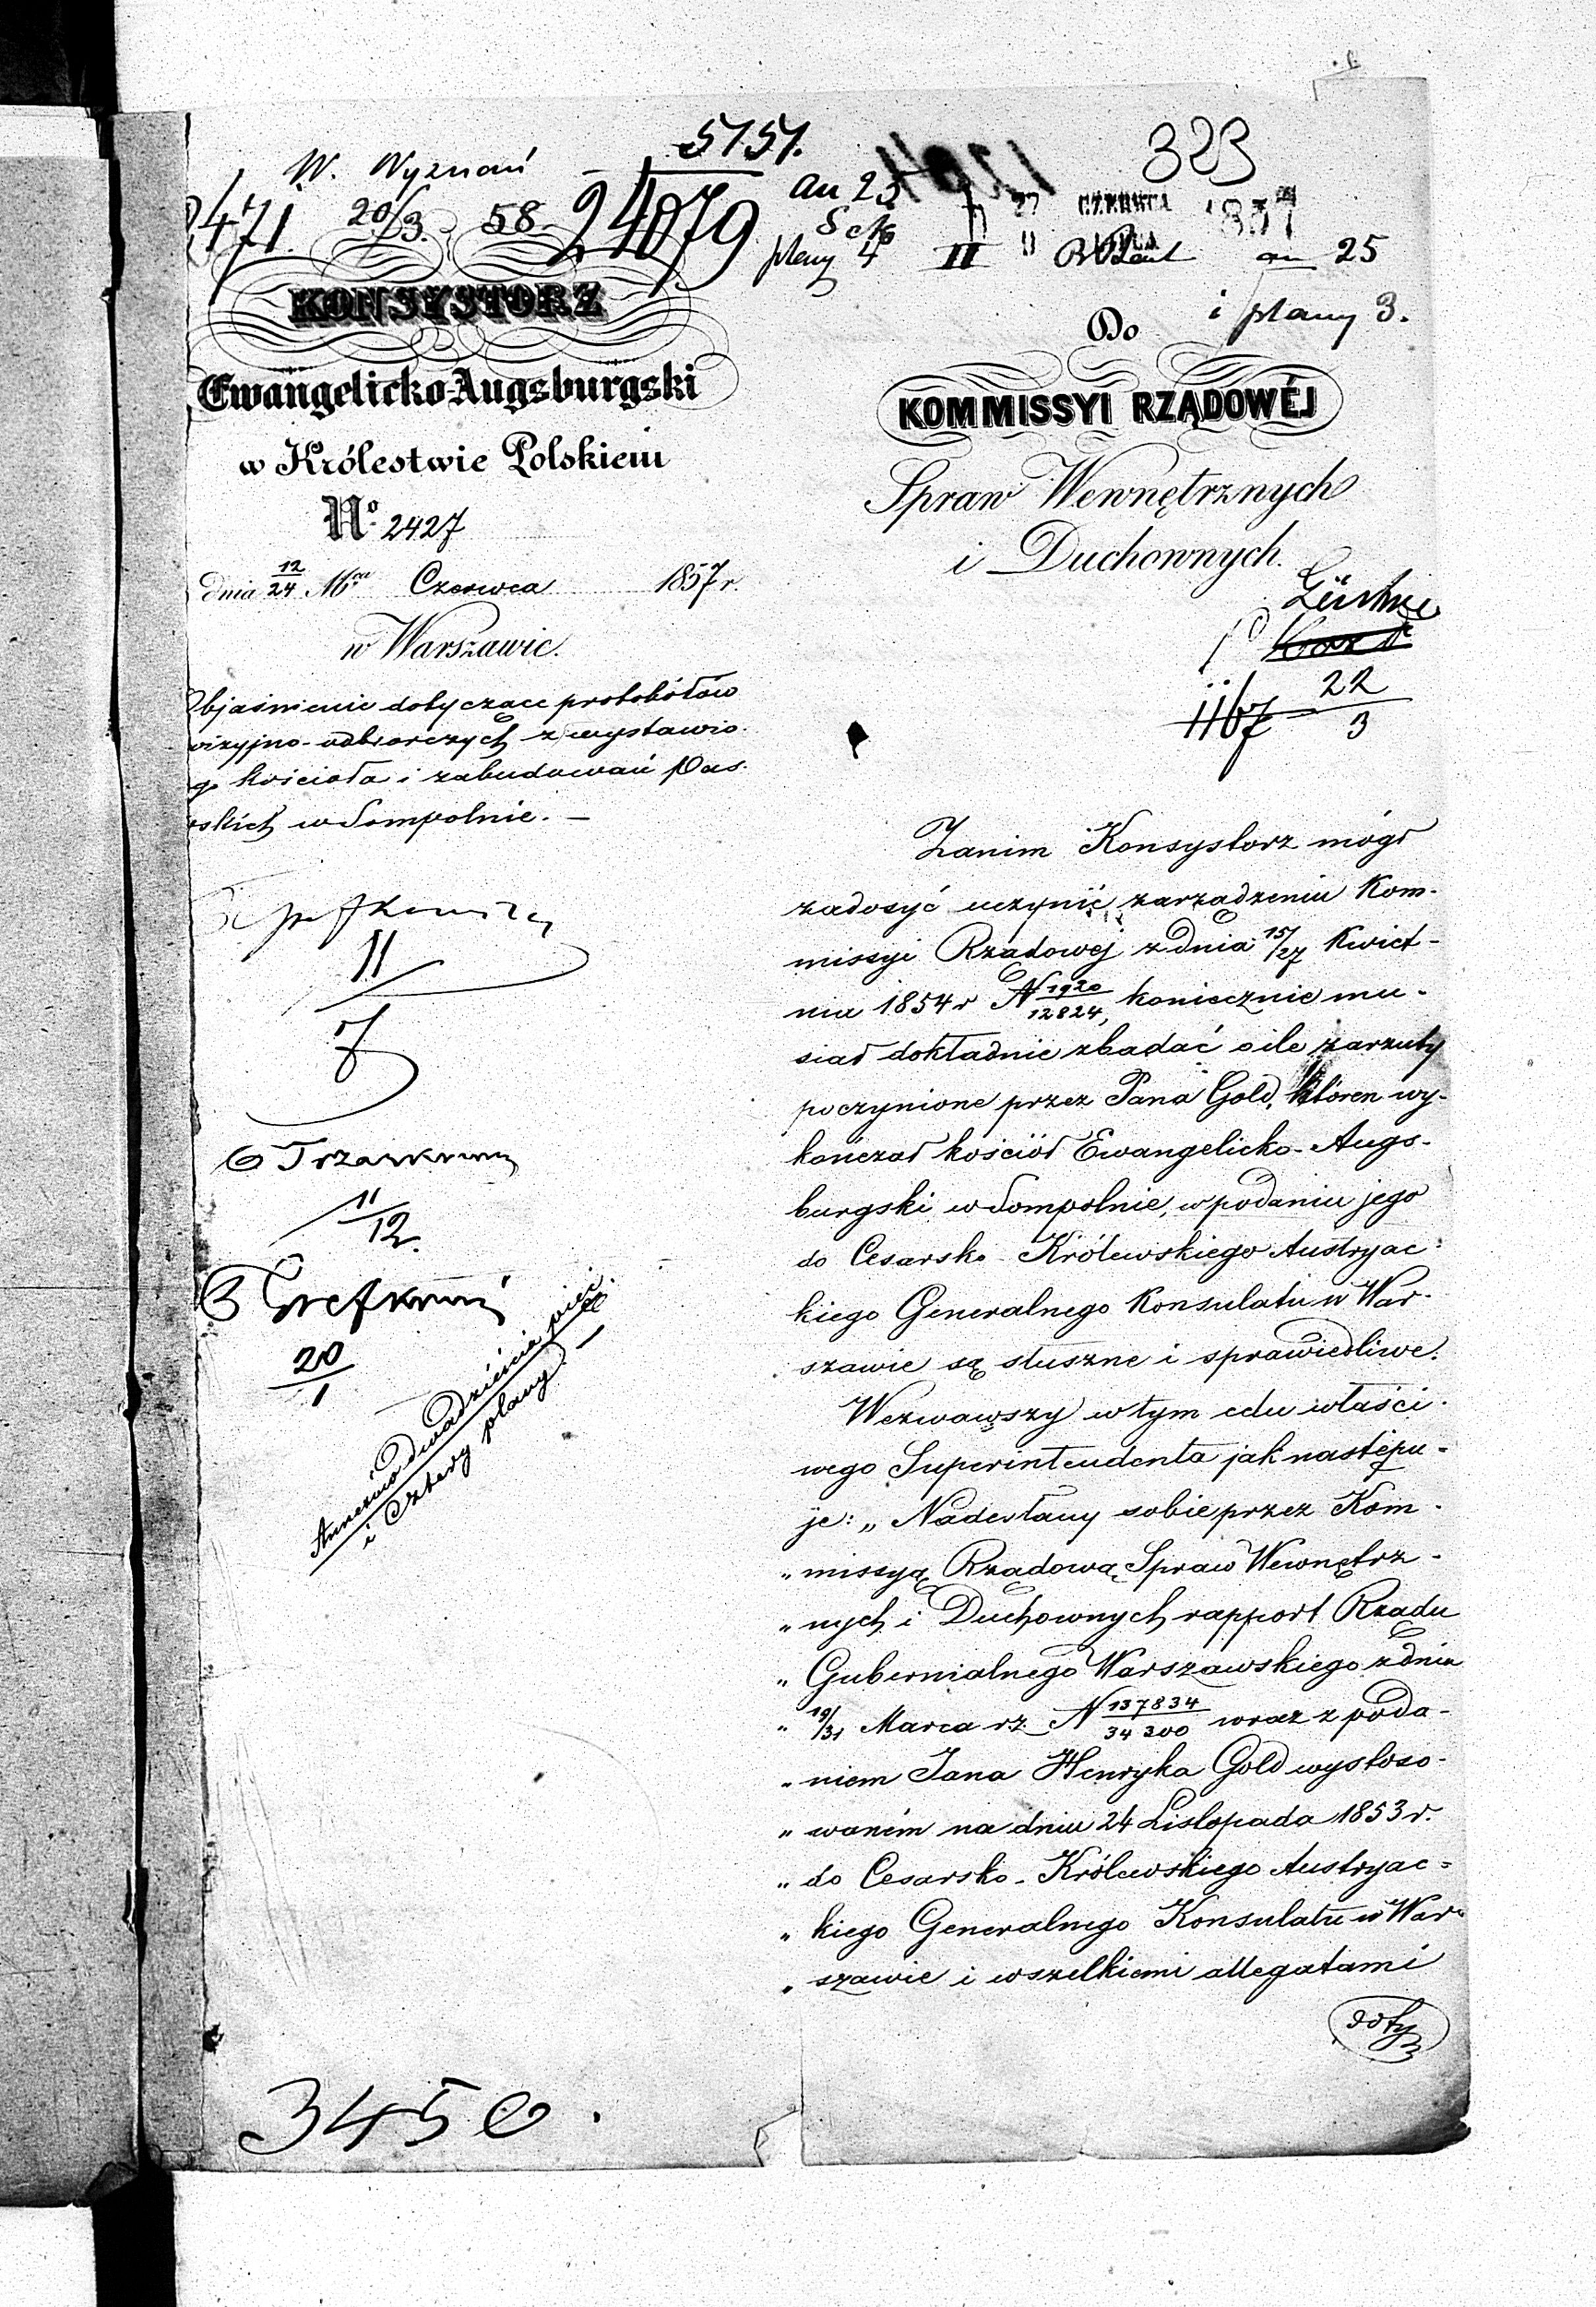 5757.
323
W. Wyznań
471. 20/3. 58. 24079
an 25
plany 4
CZERWCA 1857
II an 25
i plany 3.
KONSYSTORZ
Ewangelicko-Augsburgski
w Królestwie Polskiem
No. 2427
dnia 12/24 Mca Czerwca 1857 r.
w Warszawie.
Objaśnienie dotyczące protokółów
wizyjno-odbiorczych z wystawio-
go kościoła i zabudowań Pas-
rskich w Sompolnie. —
11/7
11/12.
20/1
Annexów dwadzieścia pięć
i cztery plany. —
3450.
Do
KOMMISSYI RZĄDOWÉJ
Spraw Wewnętrznych
i Duchownych.
1167 22/3
Zanim Konsystorz mógł
zadosyć uczynić zarządzeniu Kom-
missyi Rządowej z dnia 15/27 Kwiet-
nia 1854 r N 1920/12824, koniecznie mu-
siał dokładnie zbadać o ile zarzuty
poczynione przez Pana Gold, któren wy-
kończał kościół Ewangelicko-Augs-
burgski w Sompolnie, w podaniu jego
do Cesarsko-Królewskiego Austryac-
kiego Generalnego Konsulatu w War-
szawie są słuszne i sprawiedliwe.
Wezwawszy w tym celu właści-
wego Superintendenta jak następu-
je: „Nadesłany sobie przez Kom-
„missyą Rządową Spraw Wewnętrz-
„nych i Duchownych rapport Rządu
„Gubernialnego Warszawskiego z dnia
„19/31 Marca rz. N 137834/34200 wraz z poda-
„niem Jana Henryka Gold wystoso-
„waném na dniu 24 Listopada 1853 r.
„do Cesarsko-Królewskiego Austryac-
„kiego Generalnego Konsulatu w War-
„szawie i wszelkiemi allegatami
doty